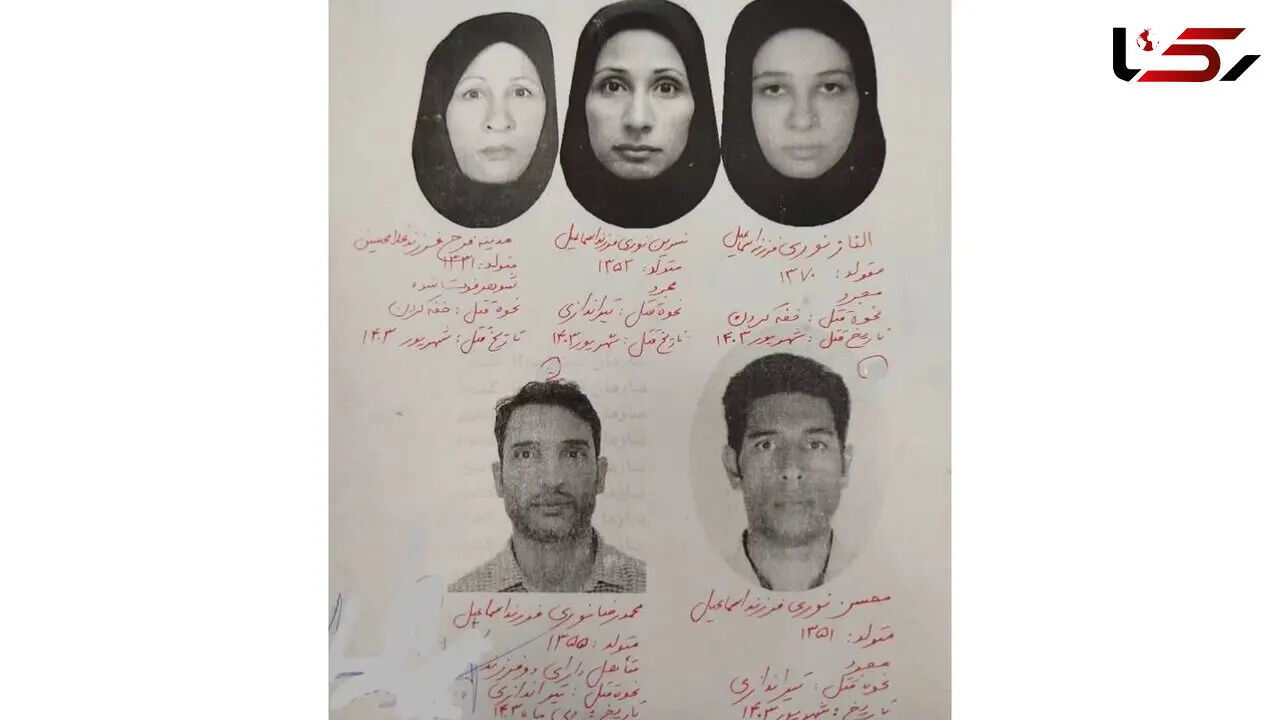 رکنا
الناز نوری فرزند اسماعیل
متولد: ۱۳۷۰
مجرد
نحوه قتل: خفه کردن
تاریخ قتل: شهریور ۱۴۰۳
نسرین نوری فرزند اسماعیل
متولد: ۱۳۵۲
مجرد
نحوه قتل: تیراندازی
تاریخ قتل: شهریور ۱۴۰۳
مدینه فرح فرزند غلامحسین
متولد: ۱۳۳۱
شوهر فوت شده
نحوه قتل: خفه کردن
تاریخ قتل: شهریور ۱۴۰۳
محسن نوری فرزند اسماعیل
متولد: ۱۳۵۱
مجرد
نحوه قتل: تیراندازی
تاریخ: شهریور ۱۴۰۳
محمدرضا نوری فرزند اسماعیل
متولد: ۱۳۵۵
متأهل دارای دو فرزند
نحوه قتل: تیراندازی
تاریخ: دی ماه ۱۴۰۳